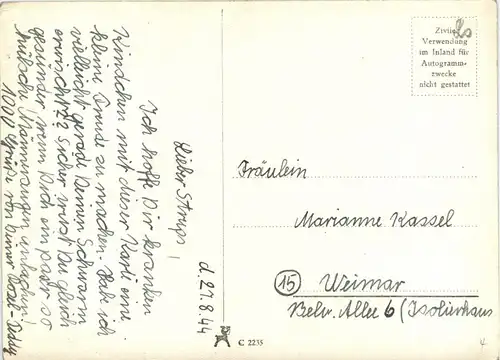 d. 27.8.44
Lieber Strups!
Ich hoffe Dir kranken
Kindchen mit dieser Karte eine
kleine Freude zu machen. Habe ich
vielleicht gerade Deinen Schwarm
erwischt?? Sicher wirst Du gleich
gesünder, wenn Dich ein paar so
hübsche Männeraugen anlachen!
1000 Grüße von Deiner
Zivile
Verwendung
im Inland für
Autogramm-
zwecke
nicht gestattet
Fräulein
Marianne Kassel
15 Weimar
Belv. Allee 6 (Isolierhaus
C 2235